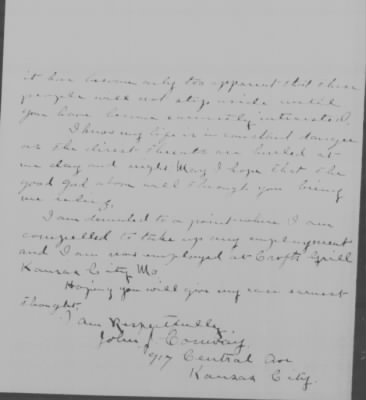 it has become only too apparent that these
people will not step aside until
you have become earnestly interested.
I know my life is in constant danger
as the direst threats are hurled at
me day and night May I hope that the
good god above will through you bring
me relief,
I am to a point where I am
compelled to take up any employment
and I am now employed at Crofts Grill
Kansas City Mo
Hoping you will give my case earnest
thought.
I am Respectfully,
John J. Conway
917 Central Ave
Kansas City.